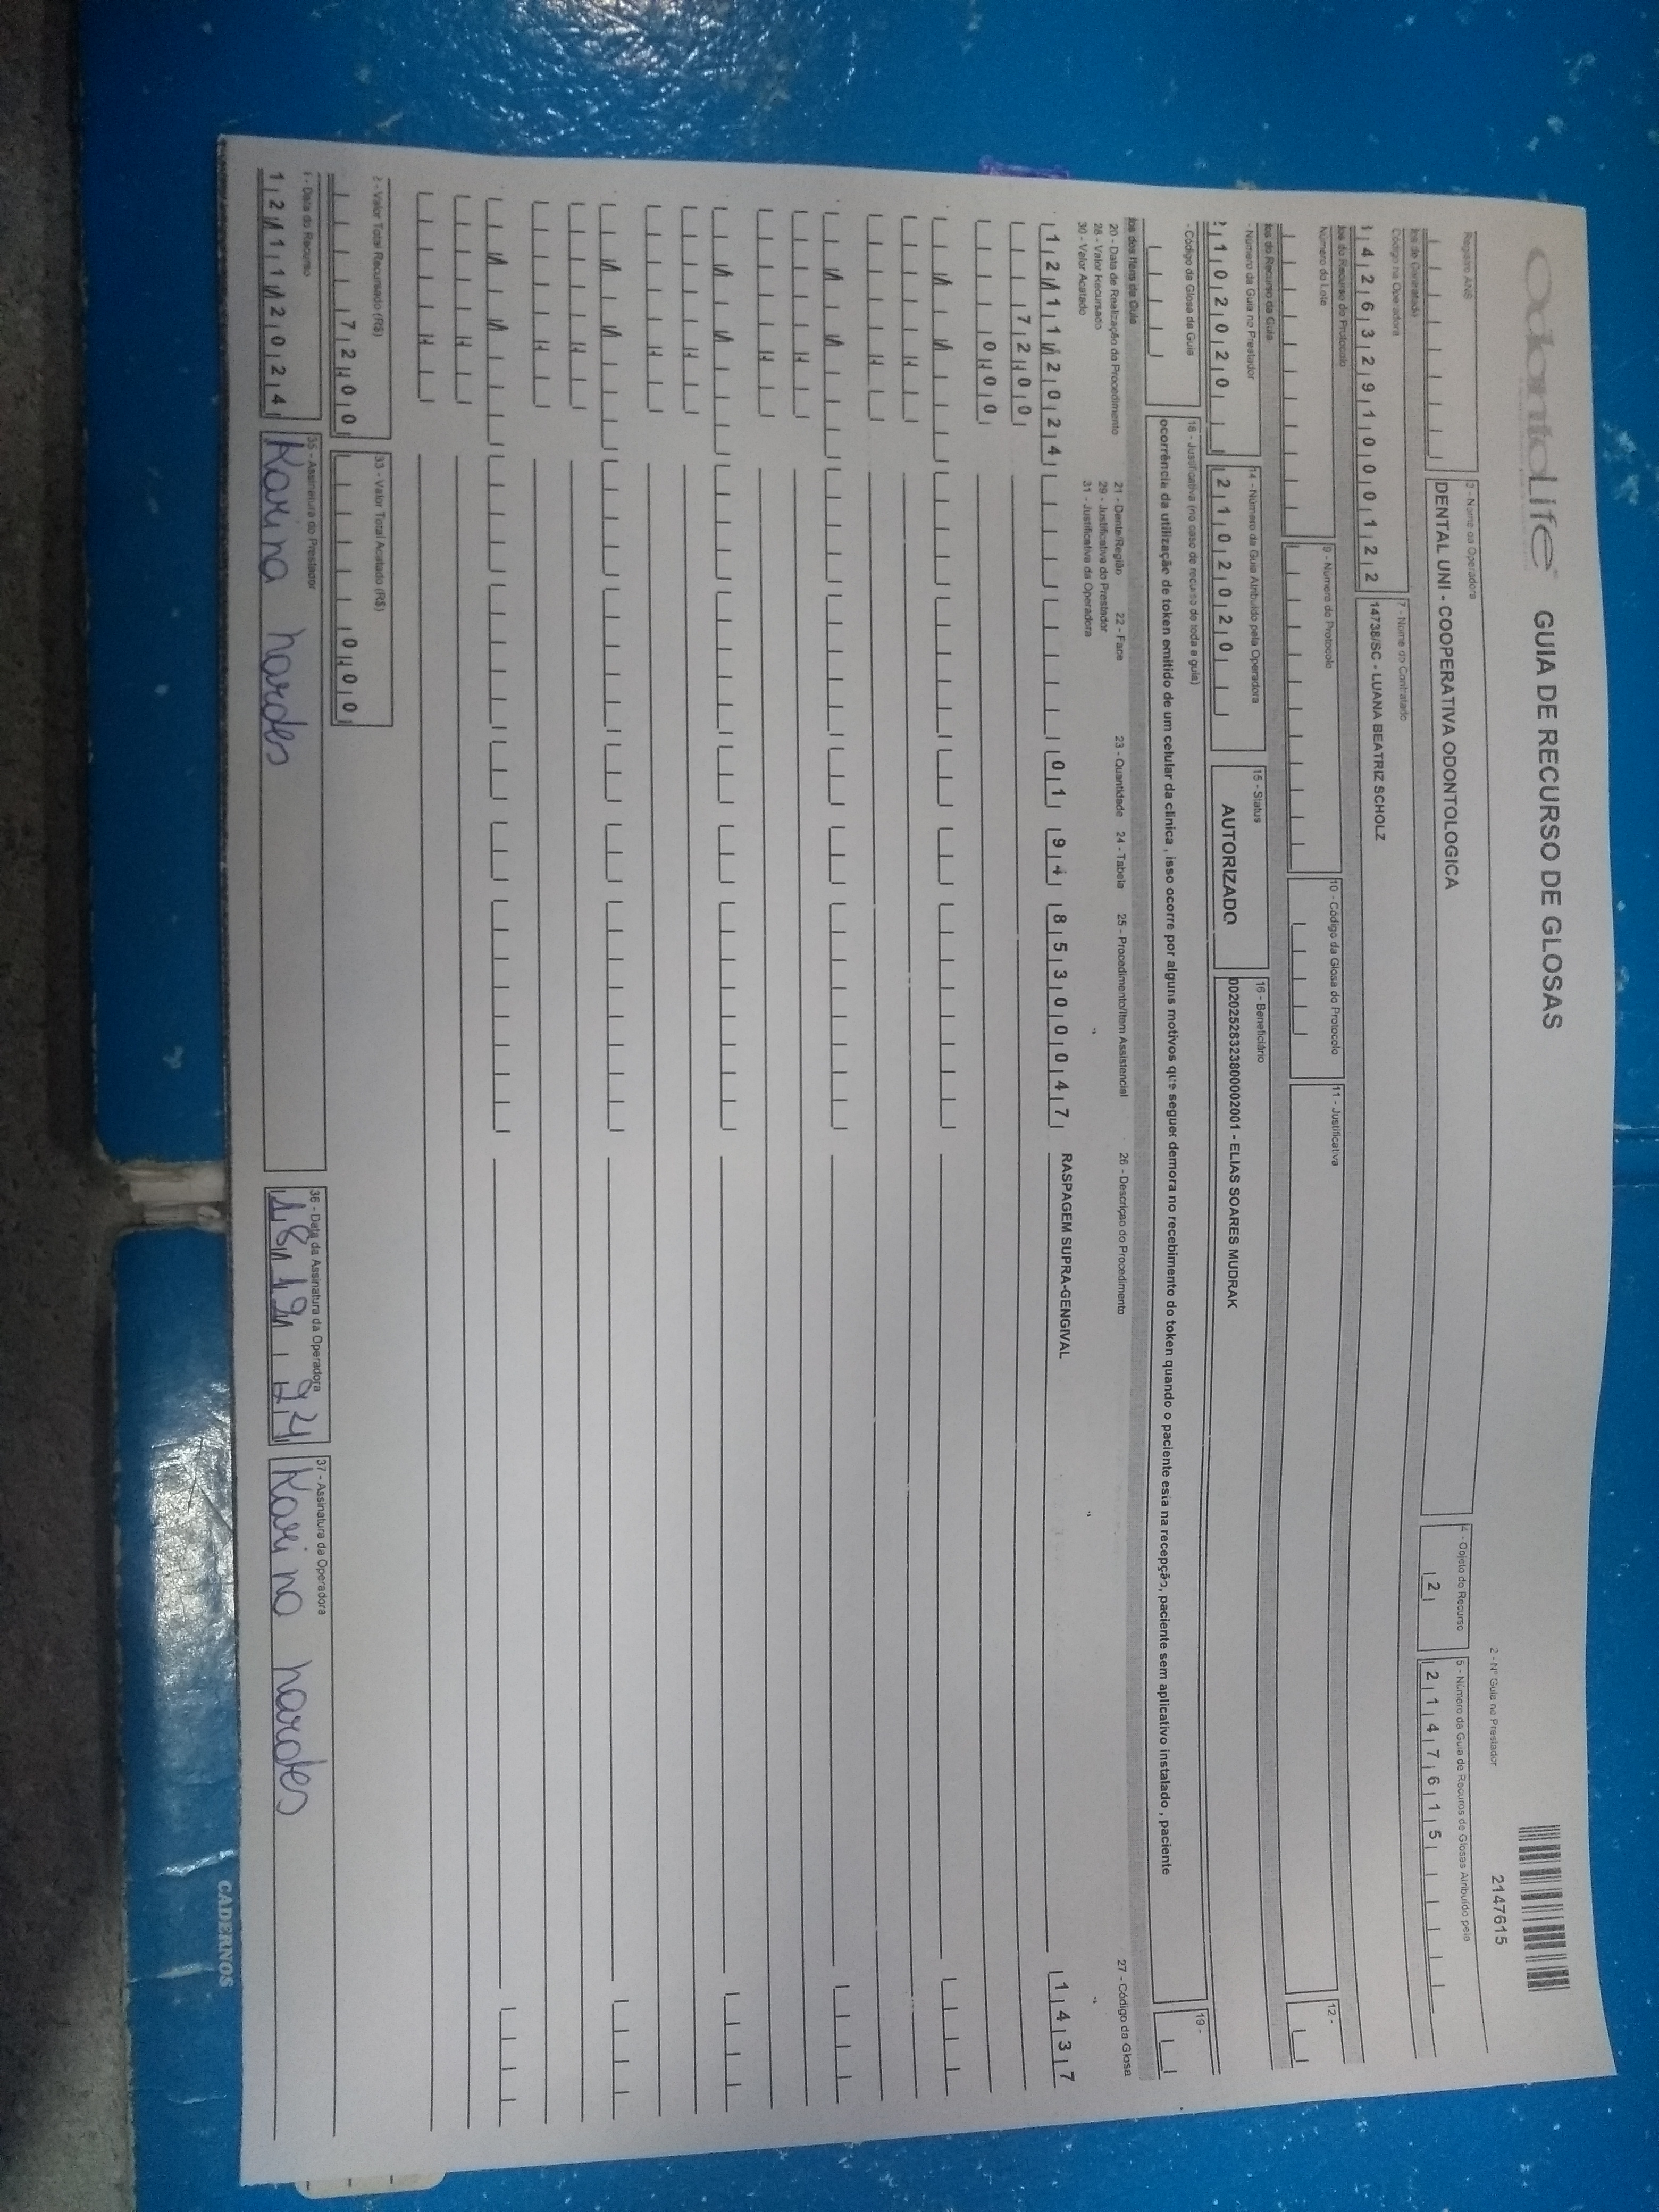 OdontoLife
GUIA DE RECURSO DE GLOSAS
2147615
2 - Nº Guia no Prestador
Registro ANS
3 - Nome da Operadora
DENTAL UNI - COOPERATIVA ODONTOLOGICA
4 - Objeto do Recurso
2
5 - Número da Guia de Recuros de Glosas Atribuído pela
2147615
dos do Contratado
Código na Operadora
42632910000122
7 - Nome do Contratado
14738/SC - LUANA BEATRIZ SCHOLZ
dos do Recurso do Protocolo
Número do Lote
9 - Número do Protocolo
10 - Código da Glosa do Protocolo
11 - Justificativa
12 -
dos do Recurso da Guia
- Número da Guia no Prestador
21102020
14 - Número da Guia Atribuído pela Operadora
21102020
15 - Status
AUTORIZADO
16 - Beneficiário
00202528323800002001 - ELIAS SOARES MUDRAK
- Código da Glosa da Guia
18 - Justificativa (no caso de recurso de toda a guia)
ocorrência da utilização de token emitido de um celular da clinica , isso ocorre por alguns motivos que seguer demora no recebimento do token quando o paciente esta na recepção, paciente sem aplicativo instalado , paciente
19 -
dos dos Itens da Guia
20 - Data de Realização do Procedimento
21 - Dente/Região
22 - Face
23 - Quantidade
24 - Tabela
25 - Procedimento/Item Assistencial
26 - Descriçao do Procedimento
27 - Código da Glosa
28 - Valor Recursado
29 - Justificativa do Prestador
30 - Valor Acatado
31 - Justificativa da Operadora
12/11/2024
01
94
85300047
RASPAGEM SUPRA-GENGIVAL
1437
72,00
0,00
2 - Valor Total Recursado (R$)
72,00
33 - Valor Total Acatado (R$)
0,00
1 - Data do Recurso
12/11/2024
35 - Assinatura do Prestador
Karina nardes
36 - Data da Assinatura da Operadora
37 - Assinatura da Operadora
Karina nardes
CADERNOS